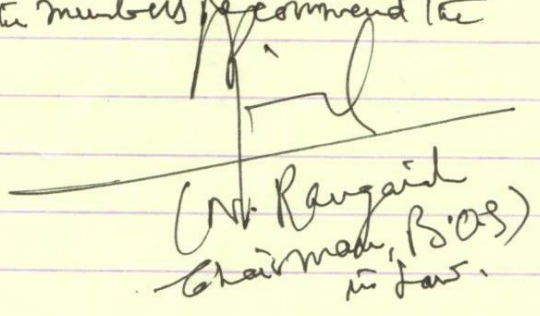 members recommend the
(N. Rangaiah
Chairman, B.O.S)
in Law.